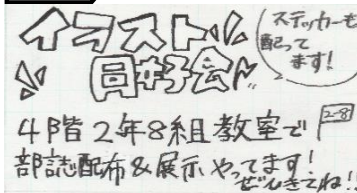 イラスト
同好会
ステッカーも
配って
ます!
4階2年8組教室で
2-8
部誌配布&展示やってます!
ぜひきてね!!